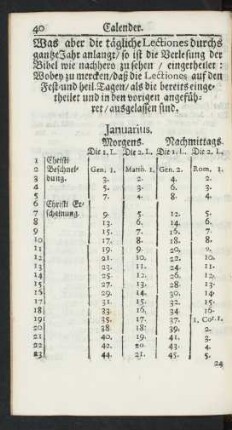 40 Calender.
Was aber die tägliche Lectiones durchs
gantze Jahr anlangt / so ist die Verlesung der
Bibel wie nachhero zu sehen / eingetheilet:
Wobey zu mercken / daß die Lectiones auf den
Fest- und heil. Tagen / als die bereits einge-
theilet und in den vorigen angefüh-
ret / ausgelassen sind.
Januarius.
Morgens. Nachmittags.
Die 1. L. Die 2. L. Die 1. L. Die 2. L.
1 Christi
2 Beschnei- Gen. 1. Matth. 1. Gen. 2. Rom. 1.
3 dung. 3. 2. 4. 2.
4 5. 3. 6. 3.
5 7. 4. 8. 4.
6 Christi Er-
7 scheinung. 9. 5. 12. 5.
8 13. 6. 14. 6.
9 15. 7. 16. 7.
10 17. 8. 18. 8.
11 19. 9. 20. 9.
12 21. 10. 22. 10.
13 23. 11. 24. 11.
14 25. 12. 26. 12.
15 27. 13. 28. 13.
16 29. 14. 30. 14.
17 31. 15. 32. 15.
18 33. 16. 34. 16.
19 35. 17. 37. 1. Cor. 1.
20 38. 18. 39. 2.
21 40. 19. 41. 3.
22 42. 20. 43. 4.
23 44. 21. 45. 5.
24